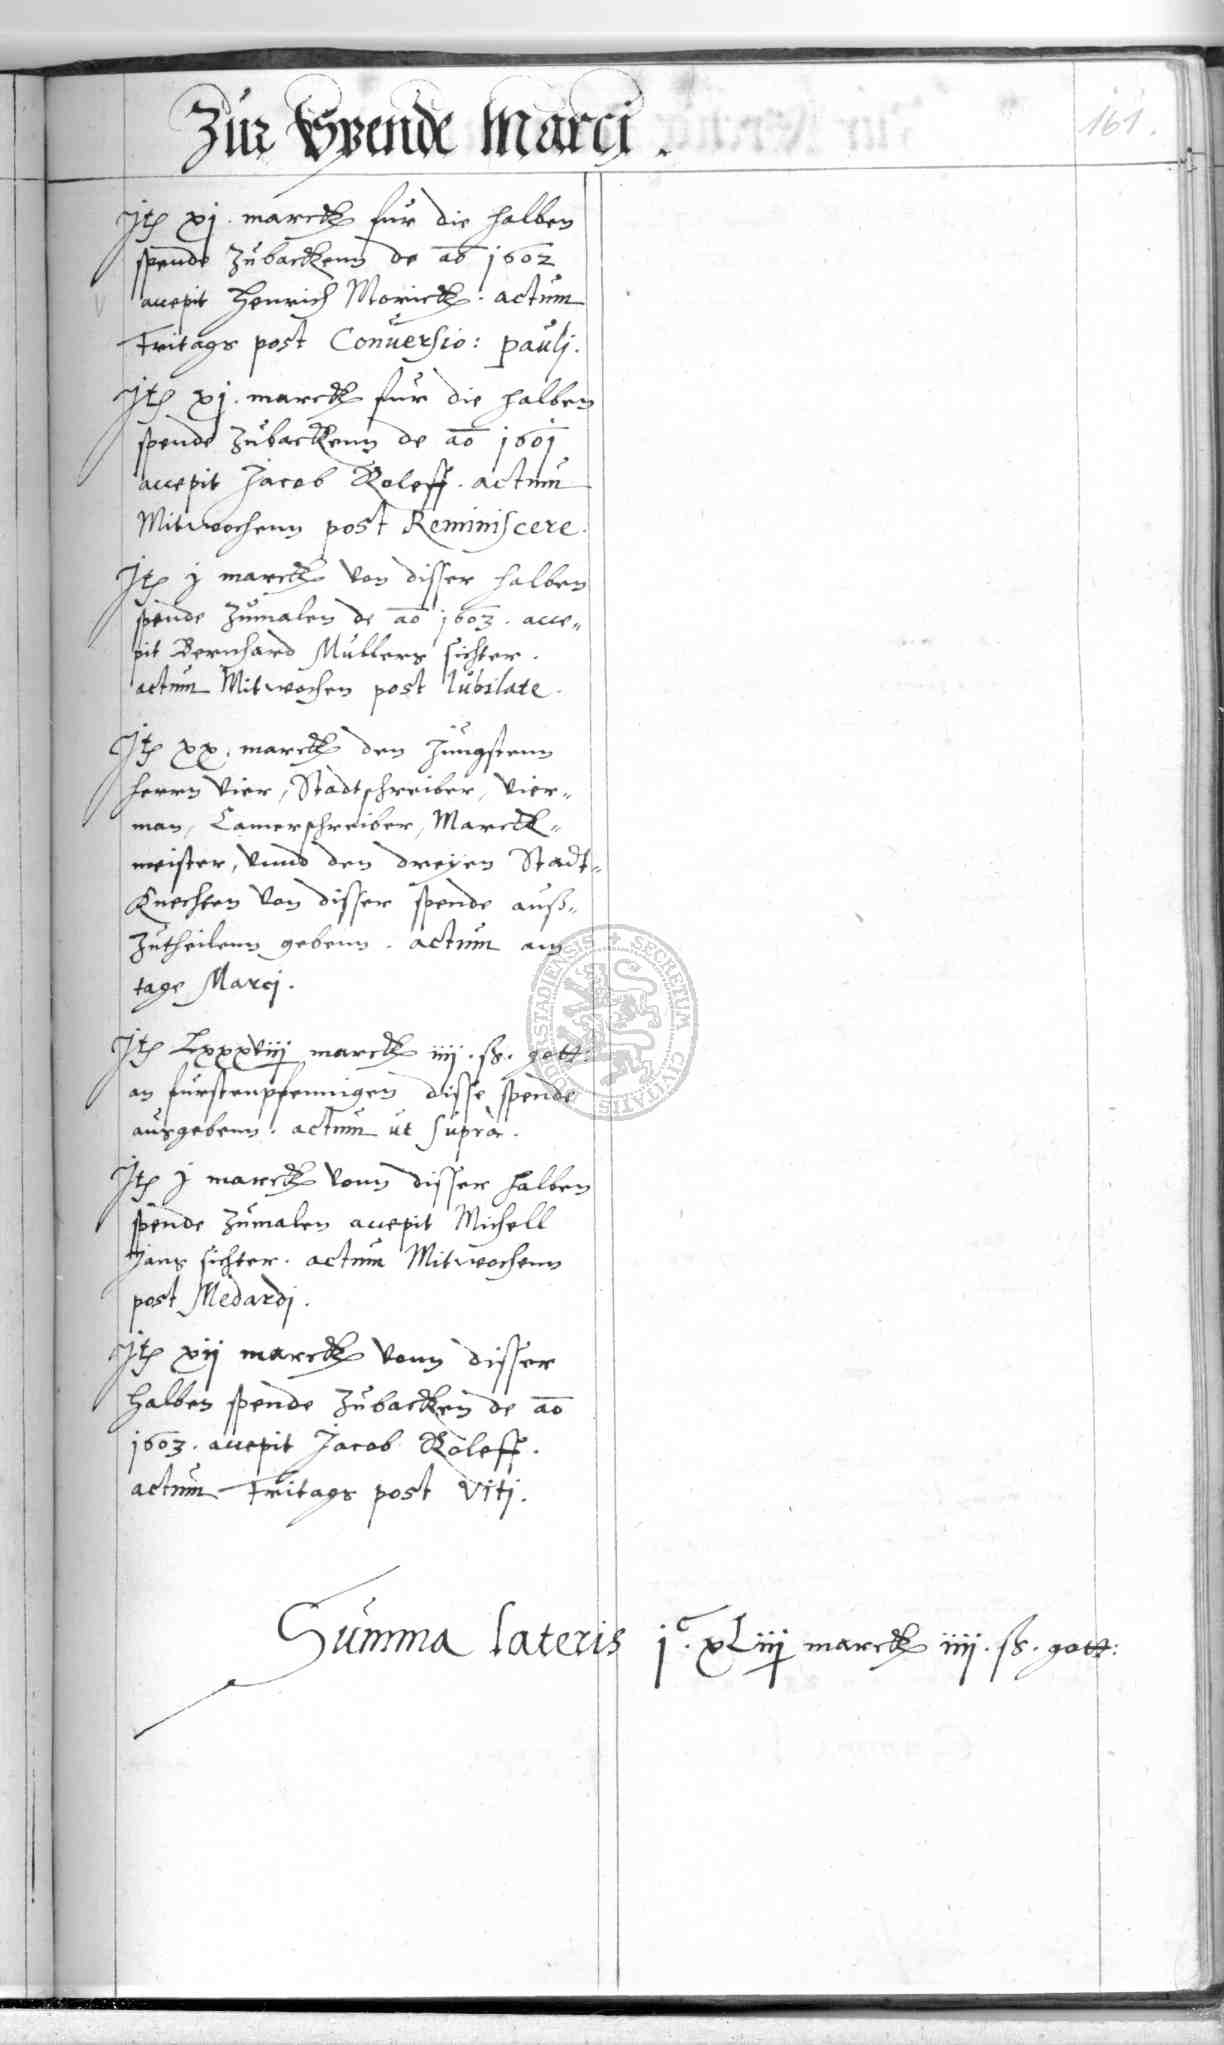 Zur Spende Marci.
161.
Jtem xj. marck fur die halben
spende zubackenn de ao 1602
accepit Henrich Morick. actum
Fritags post Conuersio: pauli.
Jtem xj. marck fur die halben
spende zubackenn de ao 1601
accepit Jacob Roleff. actum
Mitwochenn post Reminiscere.
Jtem j marck von disser halben
spende zumalen de ao 1603. acce-
pit Bernhard Mullers sichter.
actum Mitwochen post Iubilate.
Jtem xx. marck den Jungstenn
herrn vier, Stadtschreiber, vier-
man, Camerschreiber, Marck-
meister, vnnd den dreyen Stadt-
Knechten von disser spende auß-
zutheilenn gebenn. actum am
tage Marci.
Jtem Lxxxviij marck iiij. ß. gott:
an furstenpfennigen disse spende
ausgebenn. actum ut supra.
Jtem j marck vonn disser halben
spende zumalen accepit Michell
Jans sichter. actum Mitwochenn
post Medardi.
Jtem xij marck vonn disser
halben spende zubacken de ao
1603. accepit Jacob Roleff.
actum Fritags post Viti.
Summa lateris jc. xLiiij marck iiij. ß. gott:
SECRETUM CIVITATIS DUDERSTADIENSIS